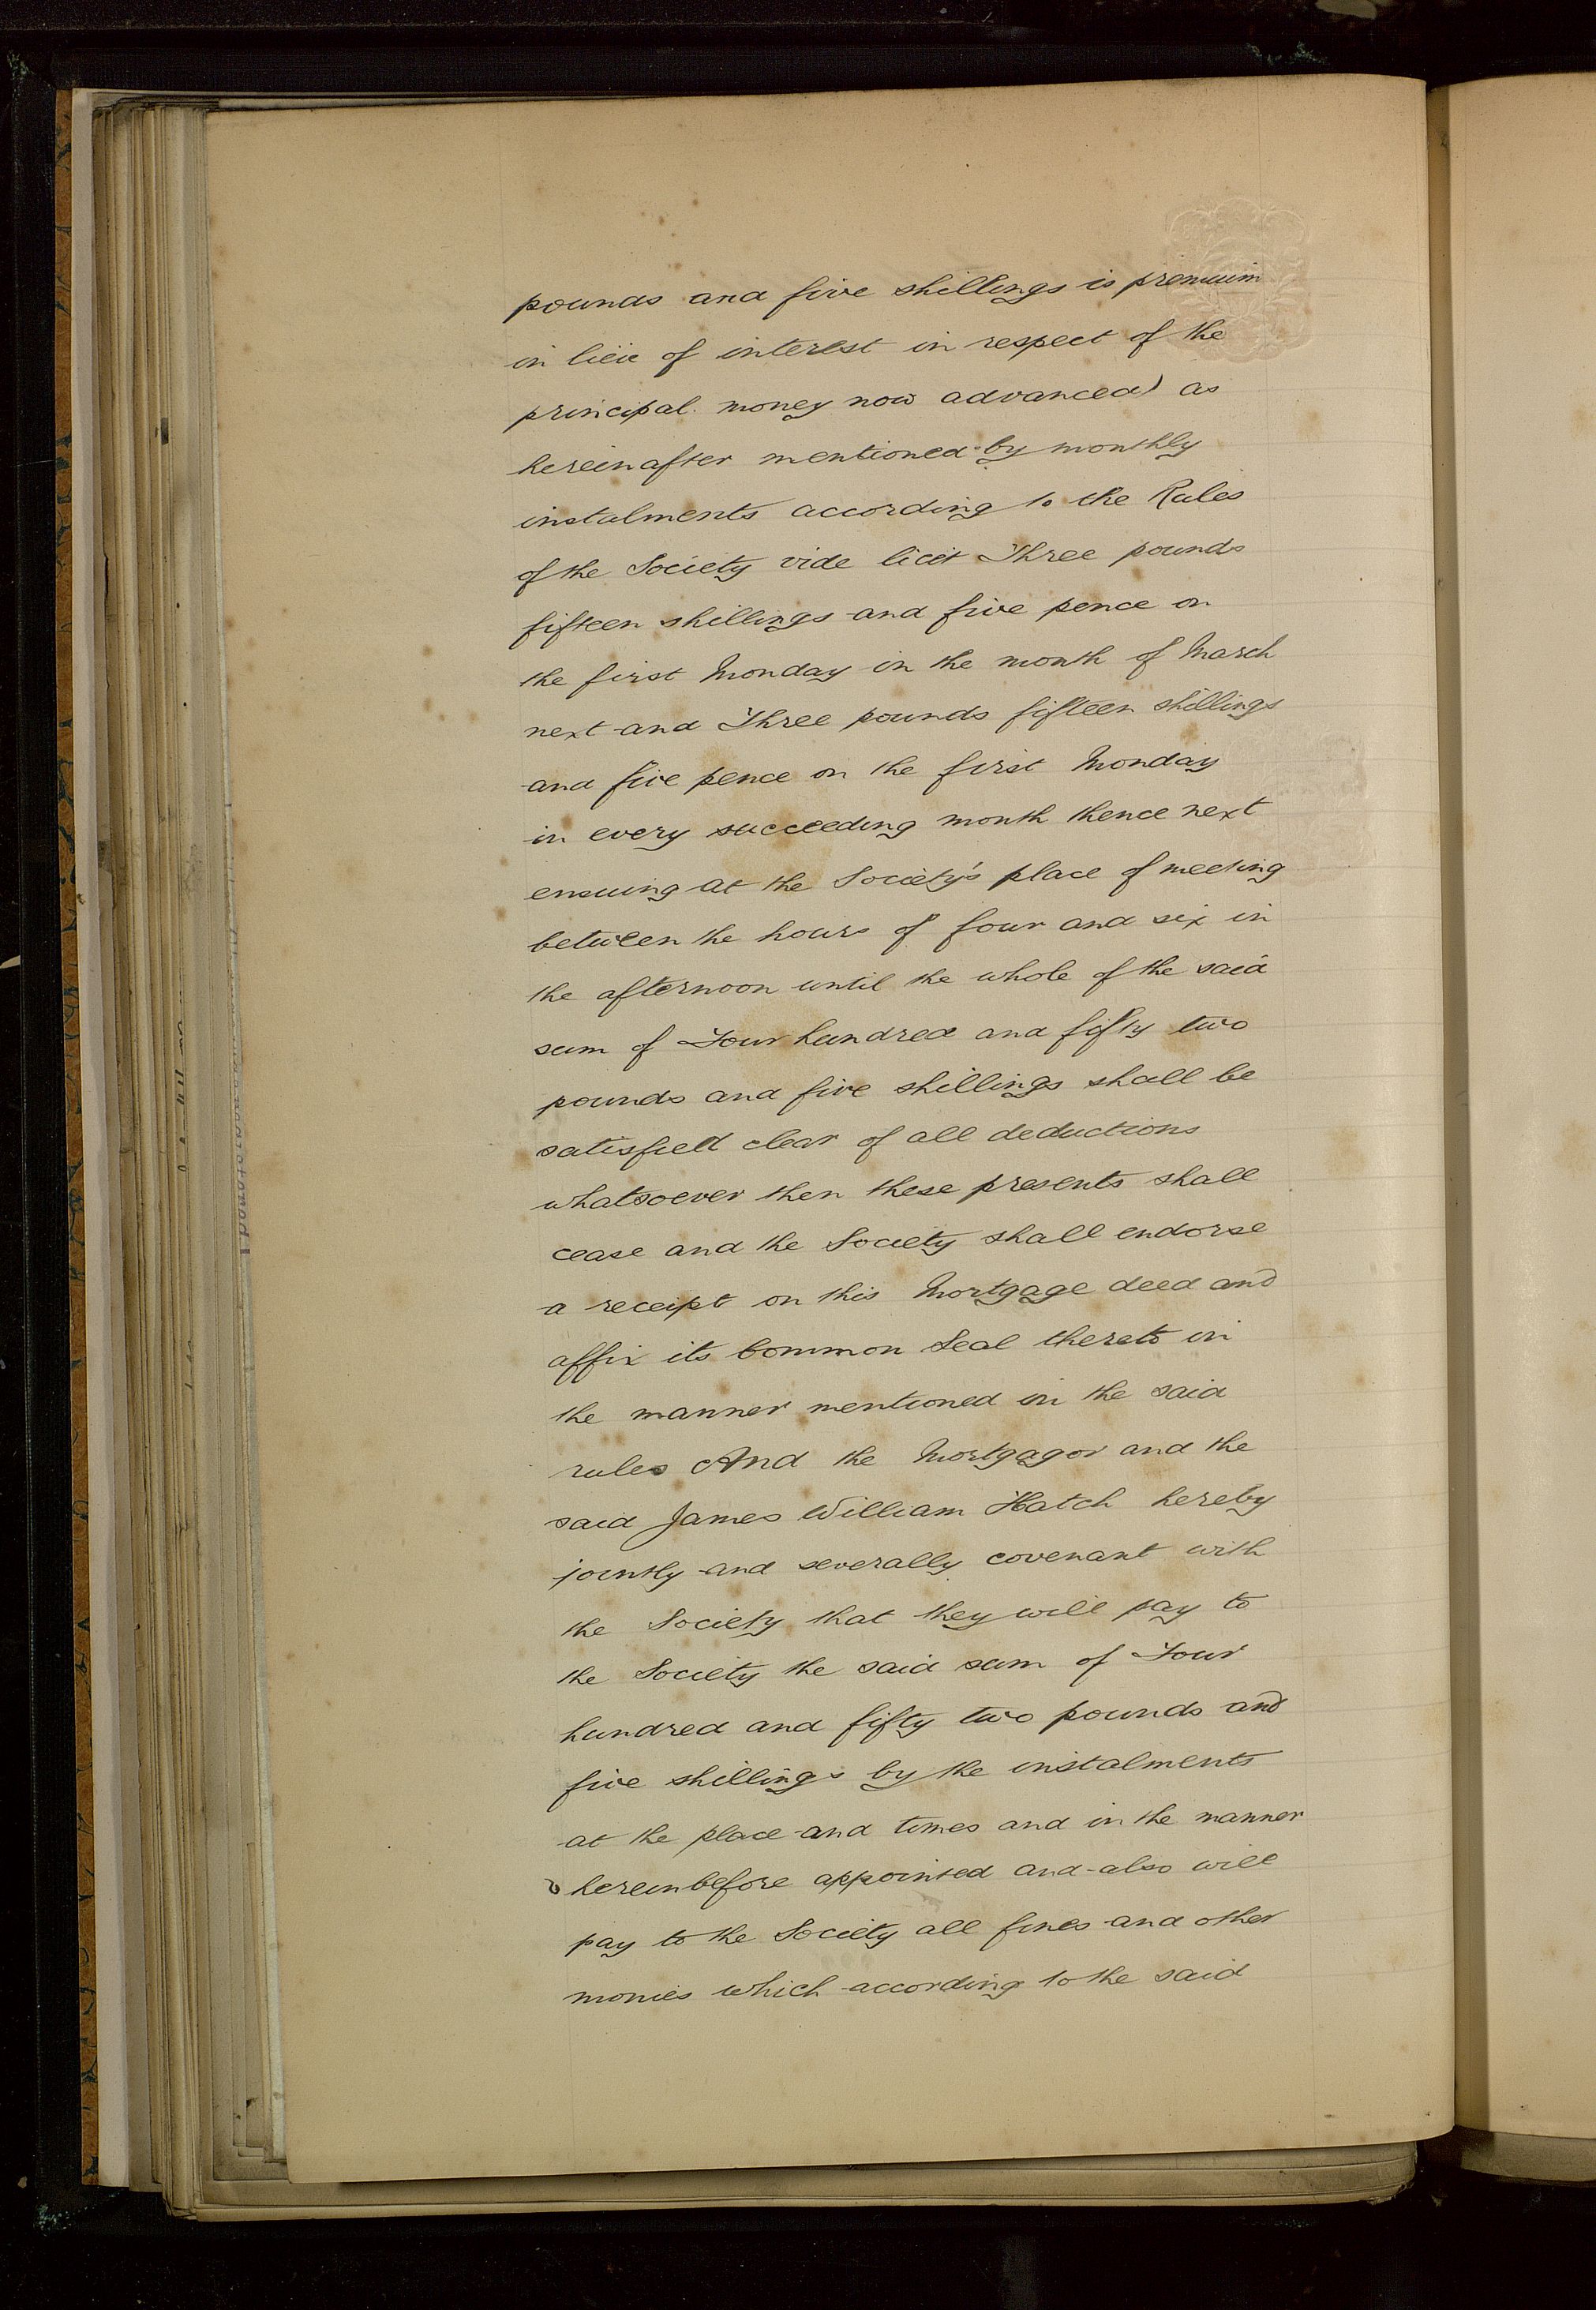 pounds and five shillings is premium
in lieu of interest in respect of the
principal money now advanced) as
hereinafter mentioned by monthly
instalments according to the Rules
of the Society vide licit Three pounds
fifteen shillings and five pence on
the first Monday in the month of March
next and Three pounds fifteen shillings
and five pence on the first Monday
in every succeeding month thence next
ensuing at the Society's place of meeting
between the hours of four and six in
the afternoon until the whole of the said
sum of Four hundred and fifty two
pounds and five shillings shall be
satisfied clear of all deductions
whatsoever then these presents shall
cease and the Society shall endorse
a receipt on this Mortgage deed and
affix its Common Seal thereto in
the manner mentioned in the said
rules And the Mortgagor and the
said James William Hatch hereby
jointly and severally covenant with
the Society that they will pay to
the Society the said sum of Four
hundred and fifty two pounds and
five shillings by the instalments
at the place and times and in the manner
hereinbefore appointed and also will
pay to the Society all fines and other
monies which according to the said